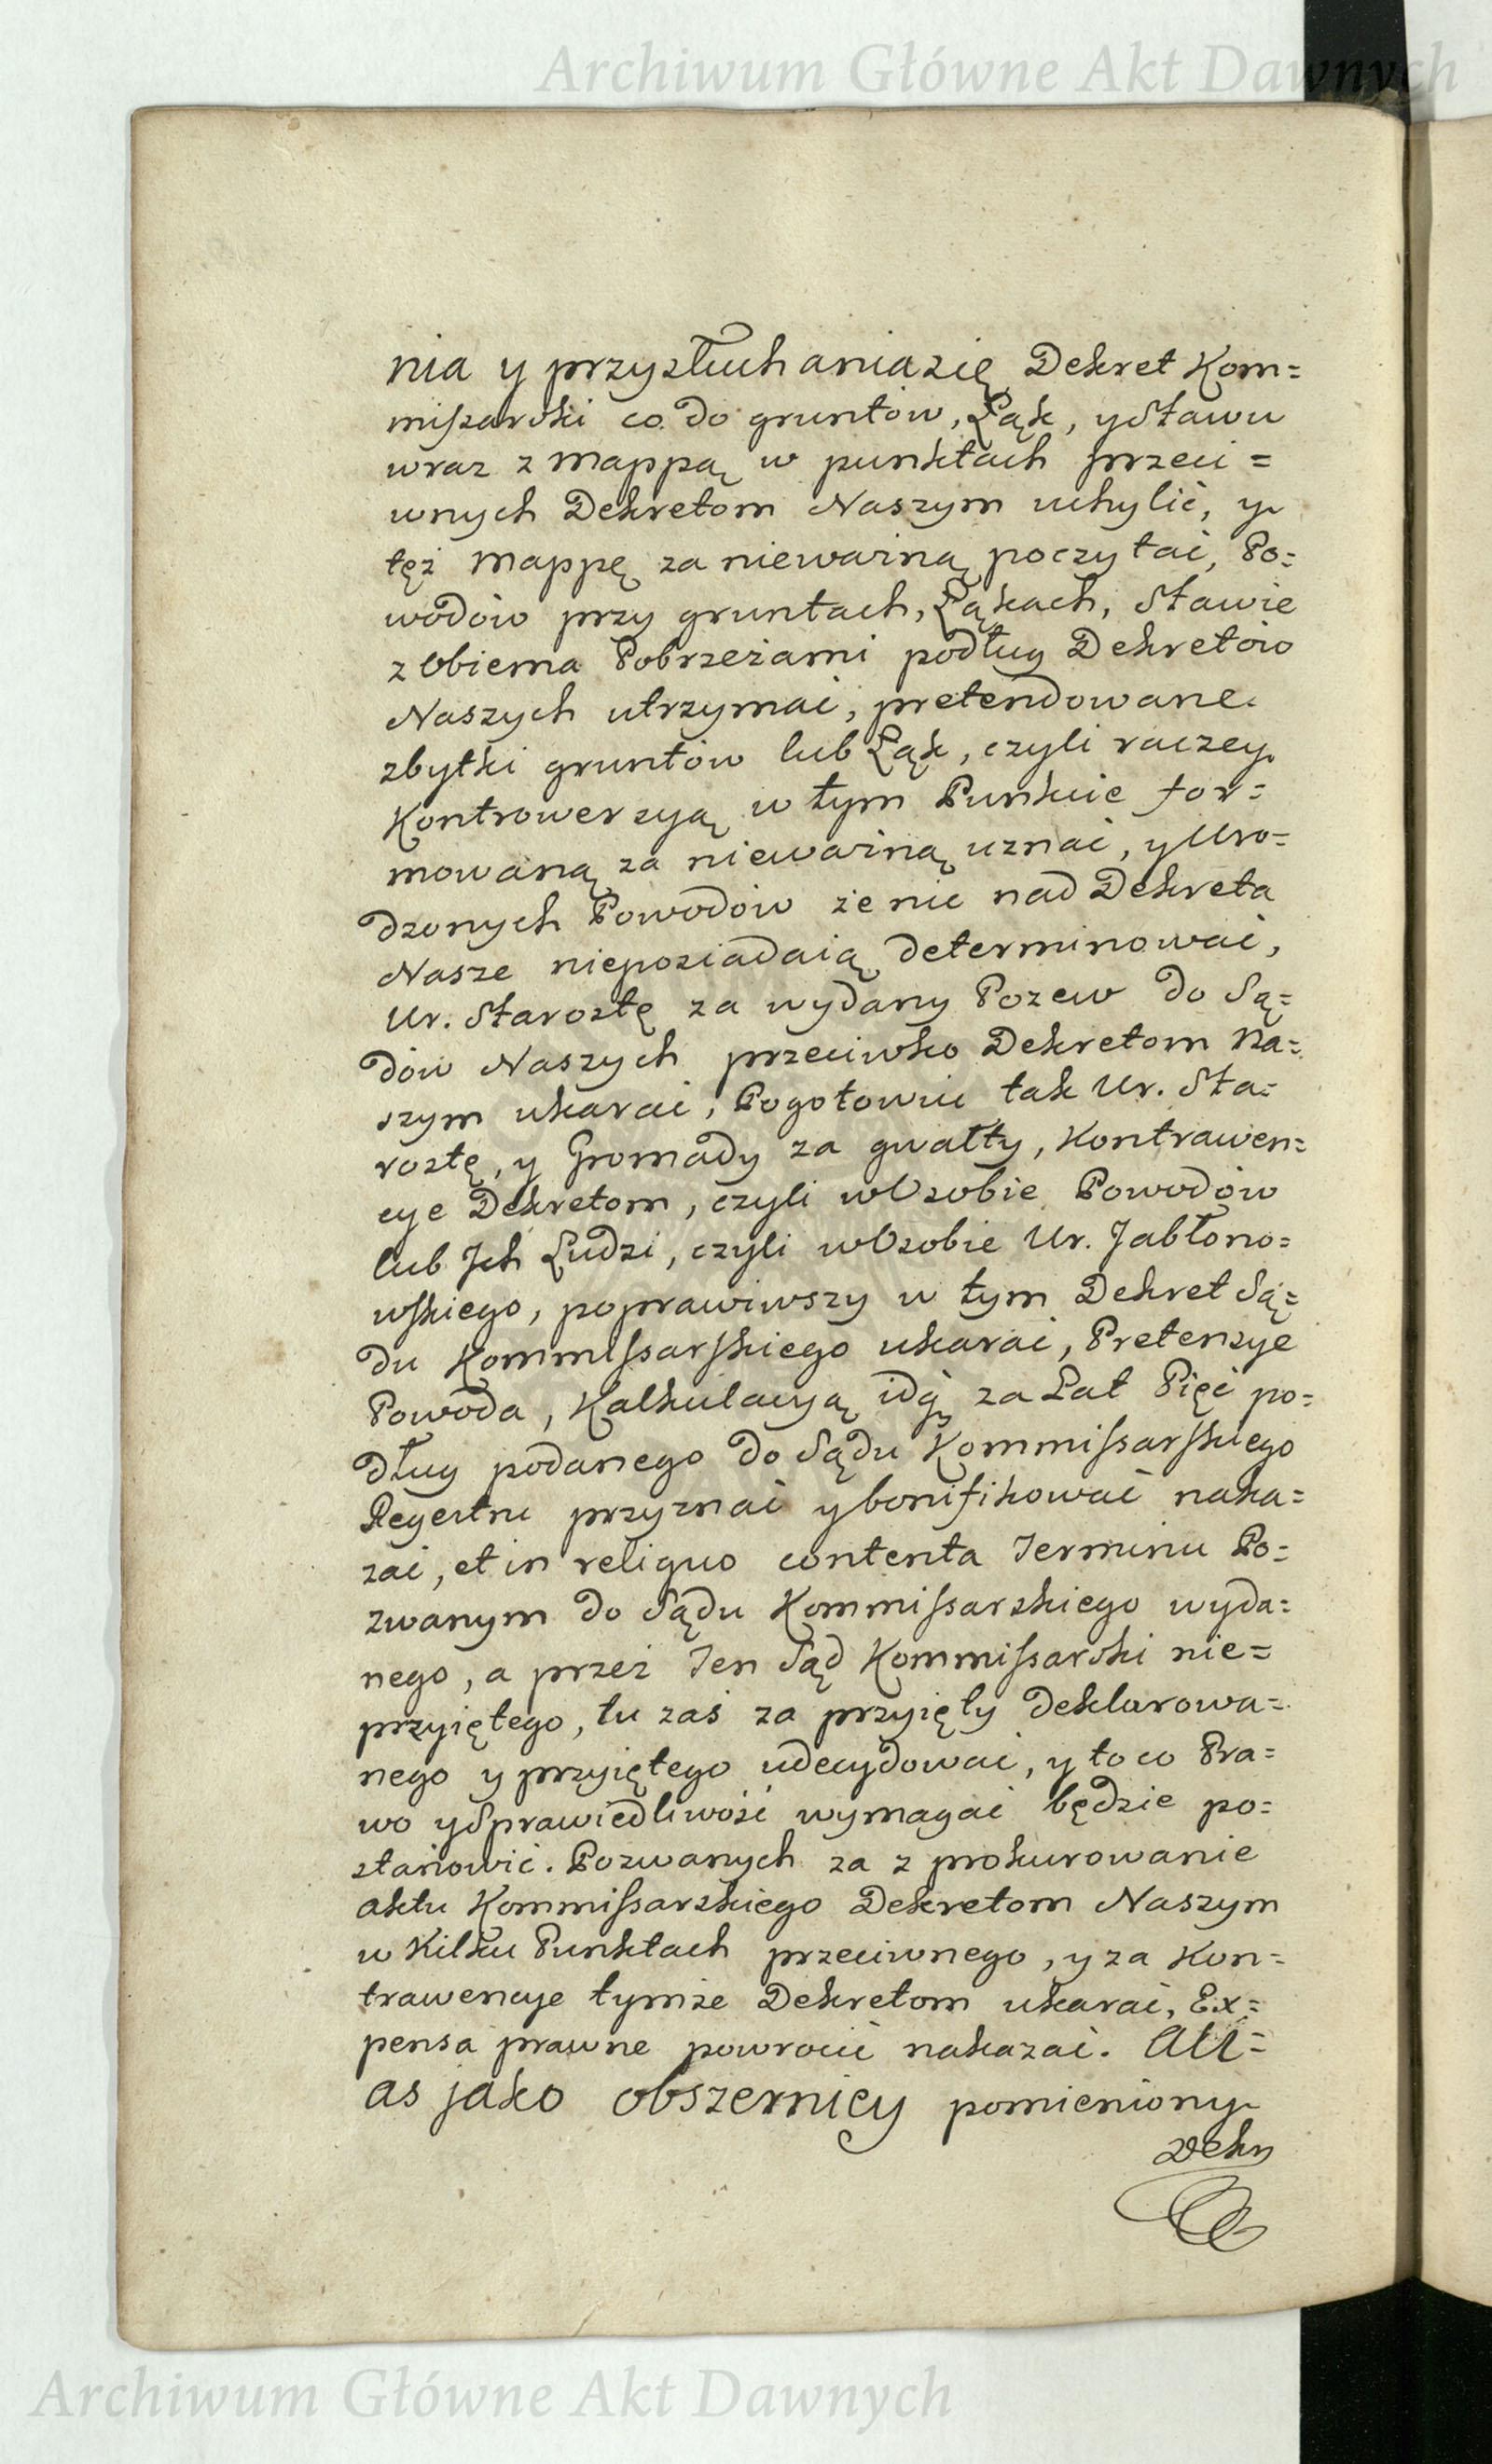 Archiwum Główne Akt Dawnych
nia y przysłuchania się Dekret Kom=
mißarski co do gruntów, Łąk, y Stawu
wraz z Mappą w punktach przeci=
wnych Dekretom Naszym uchylić, y
tęż Mappę za nieważną poczytać, Po=
wodów przy gruntach, Łąkach, Stawie
z Obiema Pobrzeżami podług Dekretów
Naszych utrzymać, pretendowane
zbytki gruntów lub Łąk, czyli raczey
Kontrowersyą w tym Punkcie for=
mowaną za nieważną uznać, y Uro=
dzonych Powodów że nic nad Dekreta
Nasze nieposiadaią determinować,
Ur. Starostę za wydany Pozew do Są=
dów Naszych przeciwko Dekretom Na=
szym ukarać, Pogotowiu tak Ur. Sta=
rostę, y Gromady za gwałty, Kontrawen=
cye Dekretom, czyli w Osobie Powodów
lub Ich Ludzi, czyli w Osobie Ur. Jabłono=
wskiego, poprawiwszy w tym Dekret Są=
du Kommissarskiego ukarać, Pretensye
Powoda, Kalkulacyą idą za Lat Pięć po=
dług podanego do Sądu Kommissarskiego
Regestru przyznać y bonifikować naka=
zać, et in reliquo contenta Terminu Po=
zwanym do Sądu Kommissarskiego wyda=
nego, a przez Ten Sąd Kommissarski nie=
przyiętego, tu zaś za przyięty deklarowa=
nego y przyiętego udecydować, y to co Pra=
wo y Sprawiedliwość wymagać będzie po=
stanowić. Pozwanych za z prokurowanie
aktu Kommissarskiego Dekretom Naszym
w Kilku Punktach przeciwnego, y za Kon=
trawencye tymże Dekretom ukarać, Ex=
pensa prawne powrócić nakazać. Ali=
as jako obszerniey pomieniony
Dekr
Archiwum Główne Akt Dawnych